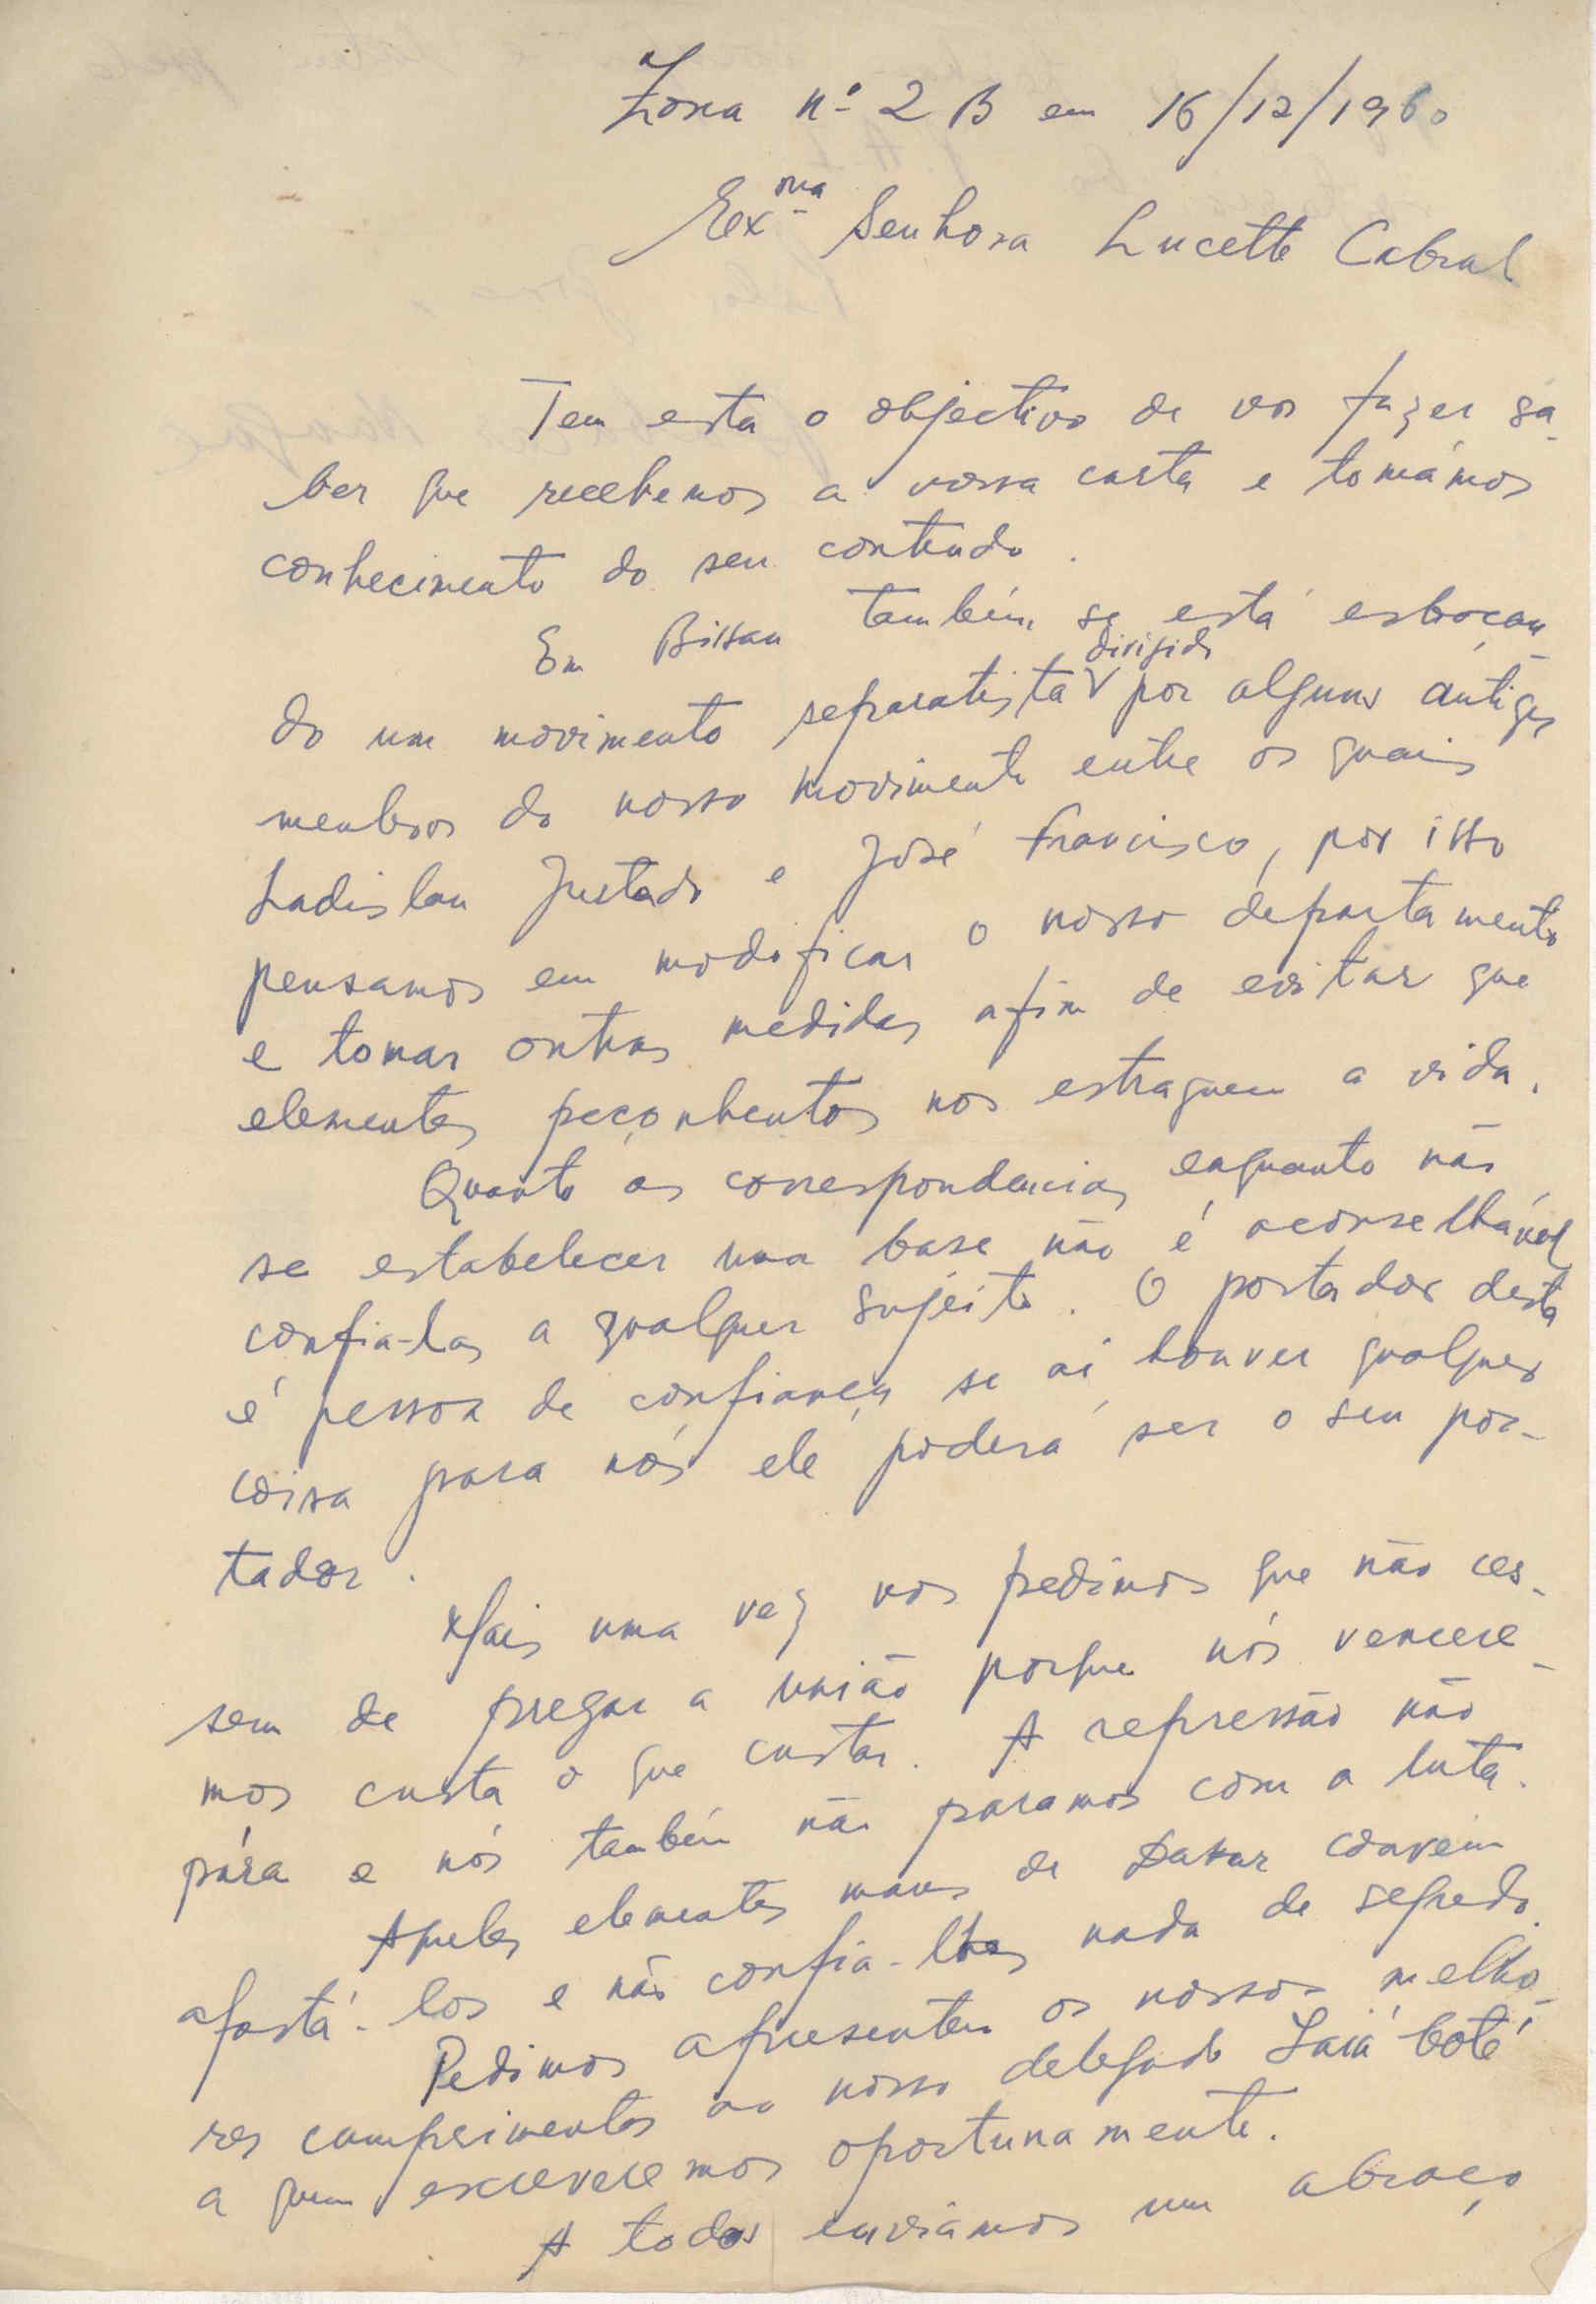 Zona nº 2 B em 16/12/1960
Exma Senhora Lucette Cabral
Tem esta o objectivo de vos fazer sa-
ber que recebemos a vossa carta e tomámos
conhecimento do seu conteudo.
Em Bissau também se está esboçan-
do um movimento separatista dirigido por alguns antigos
membros do nosso movimento entre os quais
Ladislau Justado e José Francisco, por isso
pensamos em modificar o nosso departamento
e tomar outras medidas afim de evitar que
elementos peçonhentos nos estraguem a vida.
Quanto as correspondencias enquanto não
se estabelecer uma base não é aconselhável
confia-las a qualquer sujeito. O portador desta
é pessoa de confiança, se ai houver qualquer
coisa para nós ele poderá ser o seu por-
tador.
Mais uma vez vos pedimos que não ces-
sem de pregar a união porque nós vencere-
mos custa o que custar. A repressão não
pára e nós também não paramos com a luta.
Aqueles elementos maus de Dakar convém
afastá-los e não confia-lhes nada de segredo.
Pedimos apresentem os nossos melho-
res cumprimentos ao nosso delegado Laiá boté
a quem escreveremos oportunamente.
A todos enviamos um abraço